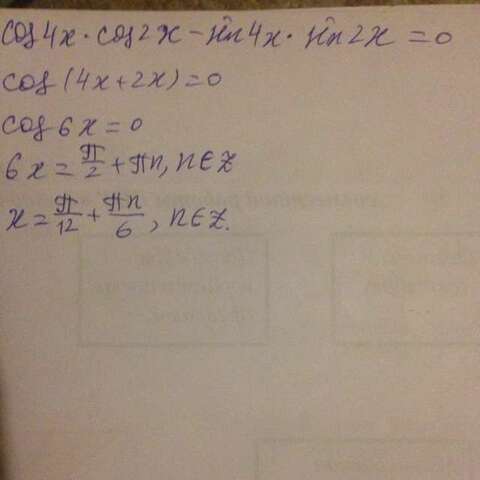 cos4x·cos2x-sin4x·sin2x=0
cos(4x+2x)=0
cos6x=0
6x=π/2+πn, n∈Z
x=π/12+πn/6, n∈Z.